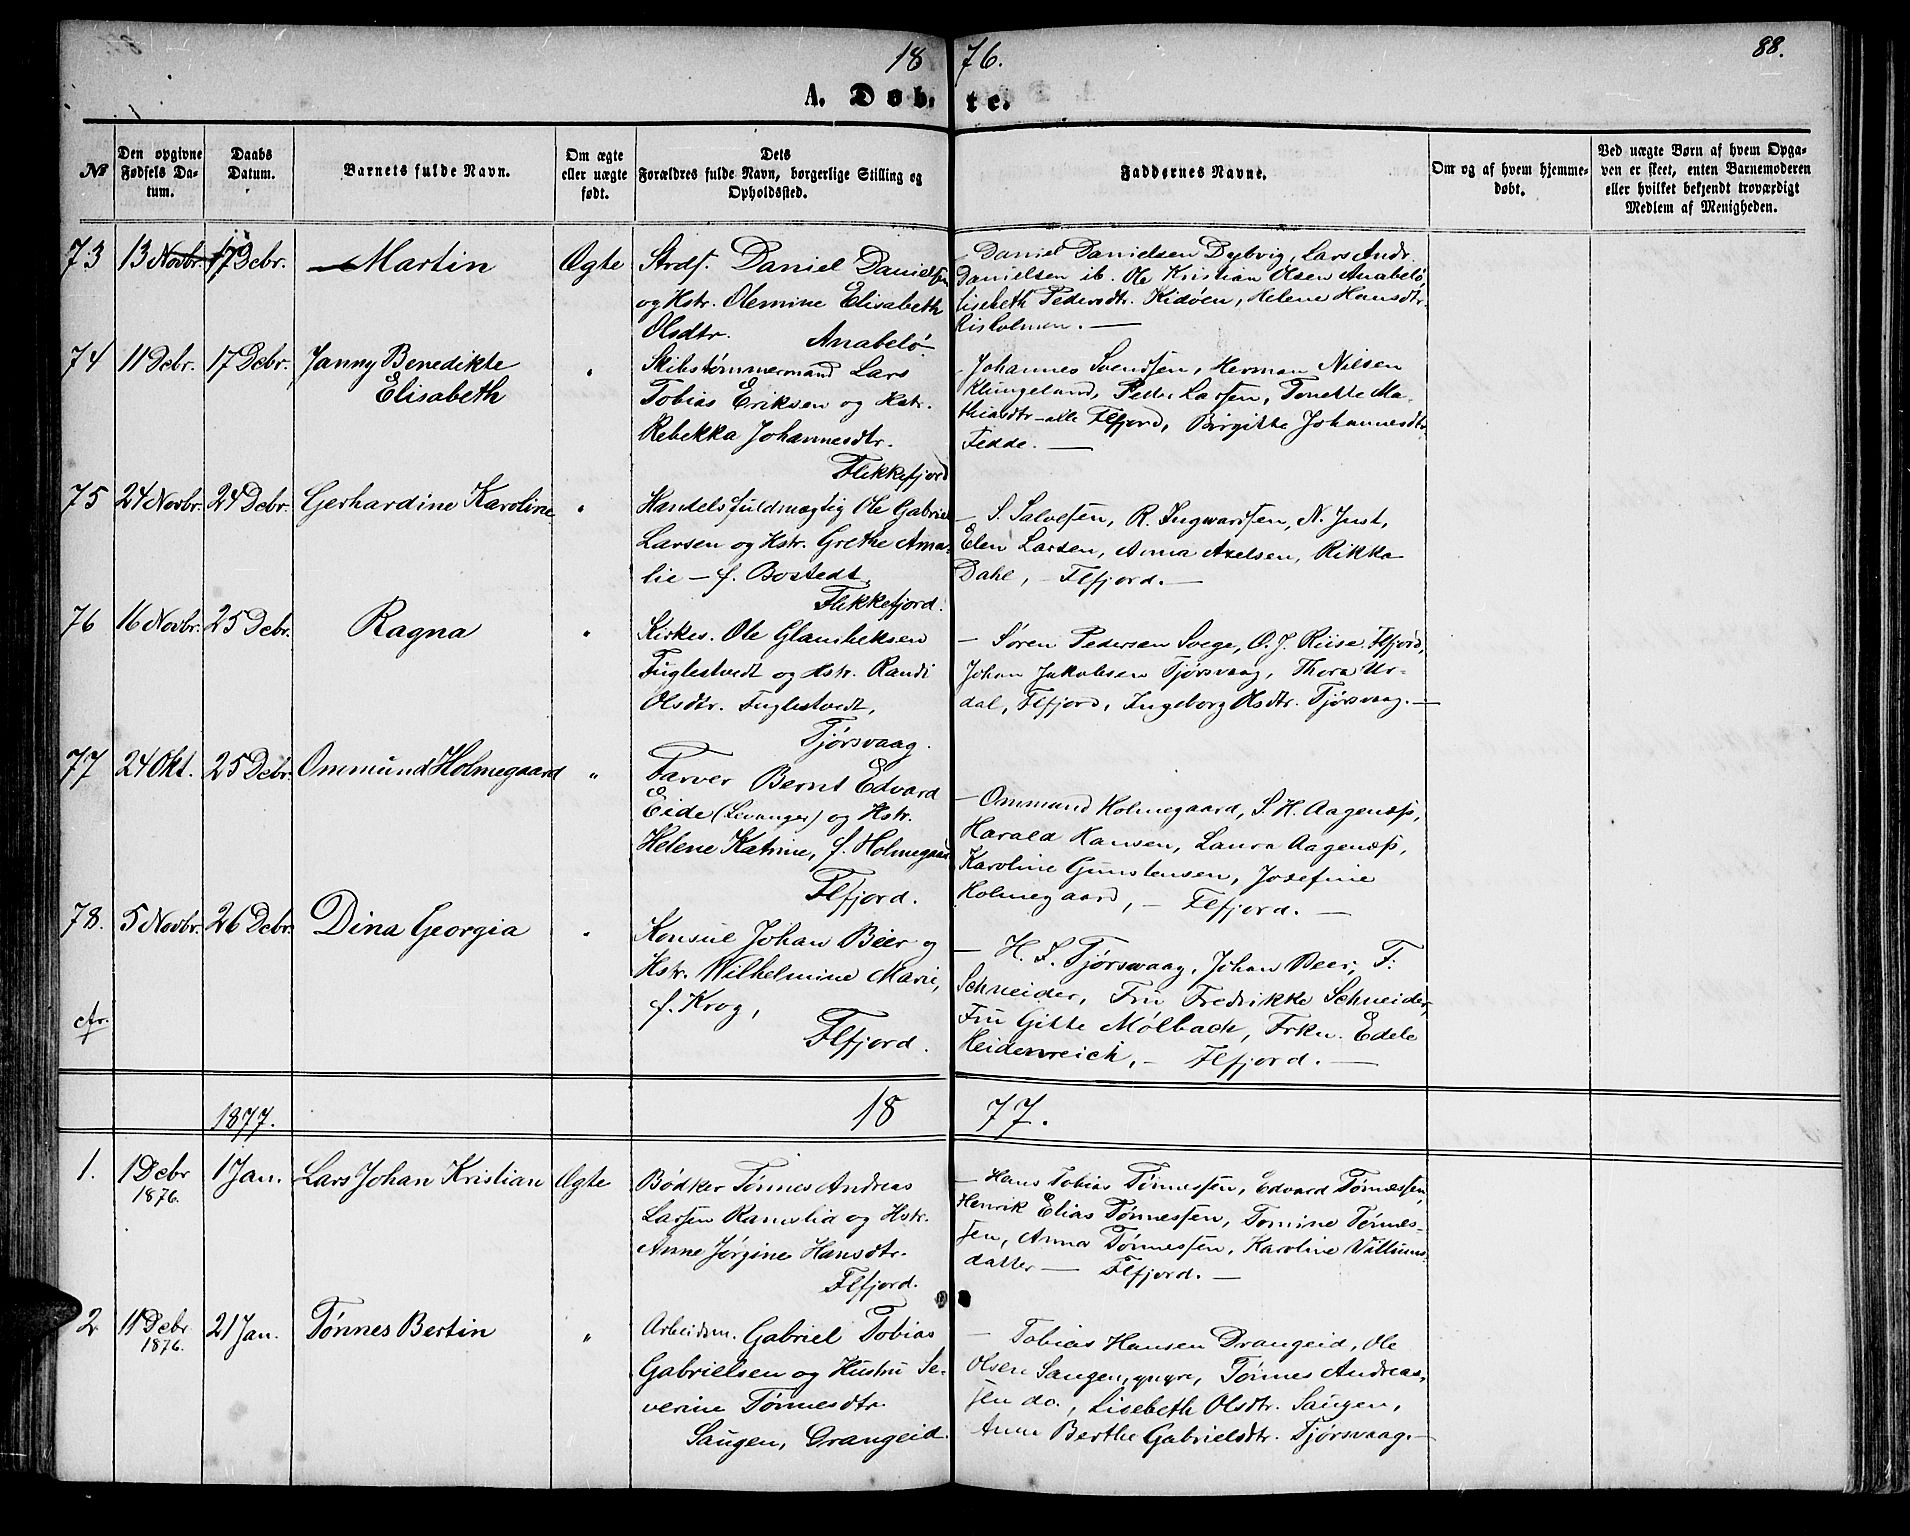 18 76. 88.
A. Døb- te.
No
Den opgivne Fødsels Datum.
Daabs Datum.
Barnets fulde Navn.
Om ægte eller uægte født.
Dets Forældres fulde Navn, borgerlige Stilling og Opholdssted.
Faddernes Navne.
Om og af hvem hjemmedøbt.
Ved uægte Børn af hvem Opgaven er skeet, enten Barnemoderen eller hvilket bekjendt troværdigt Medlem af Menigheden.
73 13 Novbr. 17 Debr. Martin Ægte
Strdf. Daniel Danielsen
og Hstr. Olemine Elisabeth
Olsdtr. Anabelø.
— Daniel Danielsen Dybvig, Lars Andr.
Danielsen ib. Ole Kristian Olsen Anabelø,
Lisebeth Pedersdtr. Kidøen, Helene Hansdtr.
Risholmen. —
74 11 Debr. 17 Debr. Janny Benedikte
Elisabeth "
Skibstømmermand Lars
Tobias Eriksen og Hstr.
Rebekka Johannesdtr.
Flekkefjord
— Johannes Svendsen, Herman Nilsen
Klungeland, Peder Larsen, Tonette Ma-
thiasdtr — alle Flfjord, Birgitte Johannesdtr.
Fedde. —
75 24 Novbr. 24 Debr. Gerhardine Karoline "
Handelsfuldmægtig Ole Gabriel
Larsen og Hstr. Grethe Ama-
lie — f. Bostedt,
Flekkefjord.
— S. Salvesen, R. Ingwardsen, N. Just,
Elen Larsen, Anna Axelsen, Rikka
Dahl, — Flfjord. —
76 16 Novbr. 25 Debr. Ragna "
Kirkes. Ole Glausheksen
Fuglestvedt og Hstr. Randi
Olsdtr. Fuglestvedt,
Tjørsvaag.
— Søren Pedersen Svege, O. J. Riise Flfjord,
Johan Jakobsen Tjørsvaag, Thora Ur-
dal, Flfjord, Ingeborg Olsdtr. Tjørsvaag. —
77 24 Okt. 25 Debr. Ommund Holmegaard "
Farver Bernt Edvard
Eide (Levanger) og Hstr.
Helene Katrine, f. Holmegaard
Flfjord.
— Ommund Holmegaard, S. H. Aagenæs,
Harald Hansen, Laura Aagenæs,
Karoline Gunstensen, Josefine
Holmegaard, — Flfjord. —
78. 5 Novbr. 26 Debr. Dina Georgia "
Konsul Johan Beer og
Hstr. Wilhelmine Marie,
f. Krog,
Flfjord.
— H. S. Tjørsvaag, Johan Beer, F.
Schneider, Fru Fredrikke Schneider,
Fru Gitte Mølbach, Frkn. Edele
Heidenreich, — Flfjord. —
1877. 18 77.
1. 1 Debr 1876. 1 Jan. Lars Johan Kristian Ægte
Bødker Tønnes Andreas
Larsen Ramslid og Hstr.
Anne Jørgine Hansdtr.
Flfjord.
— Hans Tobias Tønnessen, Edvard Tønnessen,
Henrik Elias Tønnessen, Tomine Tønnes-
sen, Anna Tønnessen, Karoline Villums-
datter — Flfjord. —
2 11 Debr 1876. 21 Jan. Tønnes Bertin "
Arbeidsm. Gabriel Tobias
Gabrielsen og Hustru Se-
verine Tønnesdtr.
Saugen, Drangeid.
— Tobias Hansen Drangeid, Ole
Olsen Saugen, yngre, Tønnes Andreas-
sen do., Lisebeth Olsdtr. Saugen,
Anne Berthe Gabrielsdtr. Tjørsvaag. —